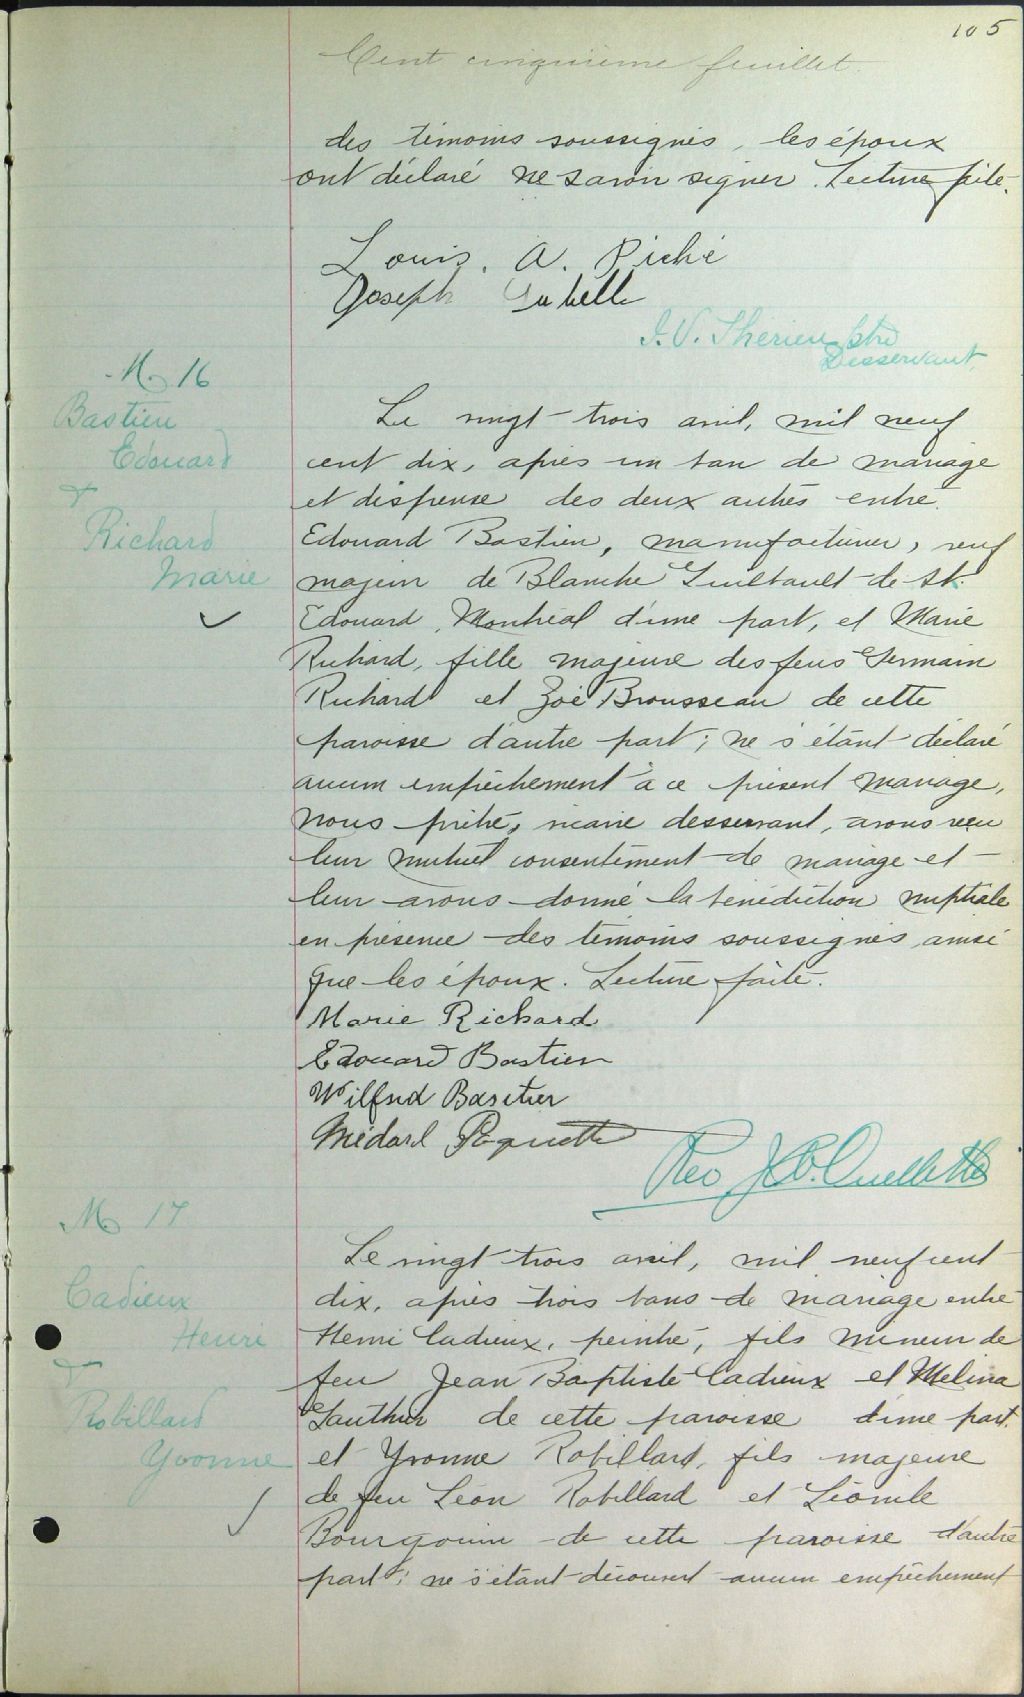 105
Cent cinquième feuillet.
des témoins soussignés, les époux
ont déclaré ne savoir signer. Lecture faite.
Louis. A. Riché
Joseph Labelle
J. V. Thérien ptre
Desservant.
M. 16
Bastien
Edouard
&
Richard
Marie
Le vingt-trois avril, mil neuf
cent dix, après un ban de mariage
et dispense des deux autres entre
Edouard Bastien, manufacturier, veuf
majeur de Blanche Guilbault de St.
Edouard, Montréal d'une part, et Marie
Richard, fille majeure des feus Germain
Richard et Zoé Brousseau de cette
paroisse d'autre part; ne s'étant déclaré
aucun empêchement à ce présent mariage,
nous prêtre, vicaire desservant, avons reçu
leur mutuel consentement de mariage et
leur avons donné la bénédiction nuptiale
en présence des témoins soussignés ainsi
que les époux. Lecture faite.
Marie Richard
Edouard Bastien
Wilfrid Bastien
Médard Paquette
Rev J. Ouellette
M. 17
Cadieux
Henri
&
Robillard
Yvonne
Le vingt trois avril, mil neuf cent
dix, après trois bans de mariage entre
Henri Cadieux, peintre, fils mineur de
feu Jean Baptiste Cadieux et Melina
Gauthier de cette paroisse d'une part.
et Yvonne Robillard, fils majeure
de feu Léon Robillard et Léonile
Bourgouin de cette paroisse d'autre
part; ne s'étant découvert aucun empêchement